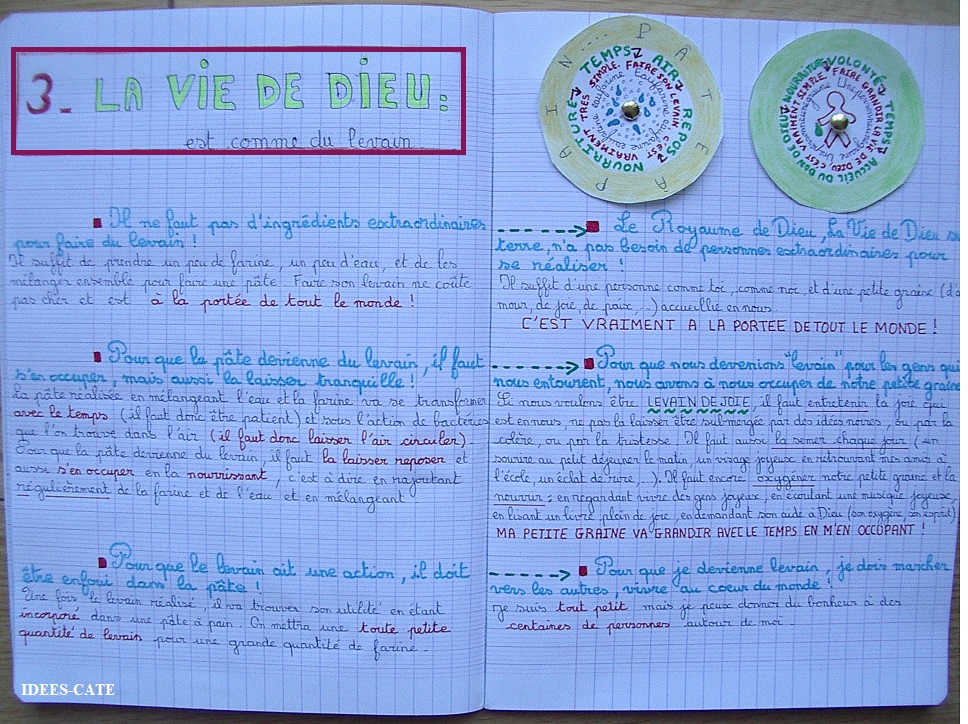 3. LA VIE DE DIEU:
est comme du levain
Il ne faut pas d'ingrédients extraordinaires
pour faire du levain !
Il suffit de prendre un peu de farine, un peu d'eau, et de les
mélanger ensemble pour faire une pâte. Faire son levain ne coûte
pas cher et est à la portée de tout le monde !
Pour que la pâte devienne du levain, il faut
s'en occuper, mais aussi la laisser tranquille !
La pâte réalisée en mélangeant l'eau et la farine va se transformer
avec le temps (il faut donc être patient) et sous l'action de bactéries
que l'on trouve dans l'air (il faut donc laisser l'air circuler)
Pour que la pâte devienne du levain, il faut la laisser reposer et
aussi s'en occuper en la nourrissant, c'est à dire en rajoutant
régulièrement de la farine et de l'eau et en mélangeant
Pour que le levain ait une action, il doit
être enfoui dans la pâte !
Une fois le levain réalisé, il va trouver son utilité en étant
incorporé dans une pâte à pain. On mettra une toute petite
quantité de levain pour une grande quantité de farine.
IDEES-CATE
PÂTE À PAIN....
TEMPS AIR REPOS NOURRITURE
FAIRE SON LEVAIN C'EST VRAIMENT TRES SIMPLE.
Eau farine Eau farine
VOLONTÉ TEMPS ACCUEIL DU DON DE DIEU NOURRITURE
FAIRE GRANDIR LA VIE DE DIEU, C'EST VRAIMENT SIMPLE
Une personne une graine
Le Royaume de Dieu, La Vie de Dieu su
terre, n'a pas besoin de personnes extraordinaires pour
se réaliser !
Il suffit d'une personne comme toi, comme moi, et d'une petite graine (d'a
mour, de joie, de paix,...) accueillie en nous.
C'EST VRAIMENT A LA PORTEE DE TOUT LE MONDE !
Pour que nous devenions "levain" pour les gens qui
nous entourent, nous avons à nous occuper de notre petite graine
Si nous voulons être LEVAIN DE JOIE, il faut entretenir la joie qui
est en nous, ne pas la laisser être submergée par des idées noires, ou par la
colère, ou par la tristesse. Il faut aussi la semer chaque jour (un
sourire au petit déjeuner le matin, un visage joyeux en retrouvant mes amis à
l'école, un éclat de rire,...). Il faut encore oxygéner notre petite graine et la
nourrir : en regardant vivre des gens joyeux, en écoutant une musique joyeuse,
en lisant un livre plein de joie, en demandant son aide à Dieu (son oxygène, son esprit)
MA PETITE GRAINE VA GRANDIR AVEC LE TEMPS EN M'EN OCCUPANT !
Pour que je devienne levain, je dois marcher
vers les autres, vivre au coeur du monde !
Je suis tout petit mais je peux donner du bonheur à des
centaines de personnes autour de moi.